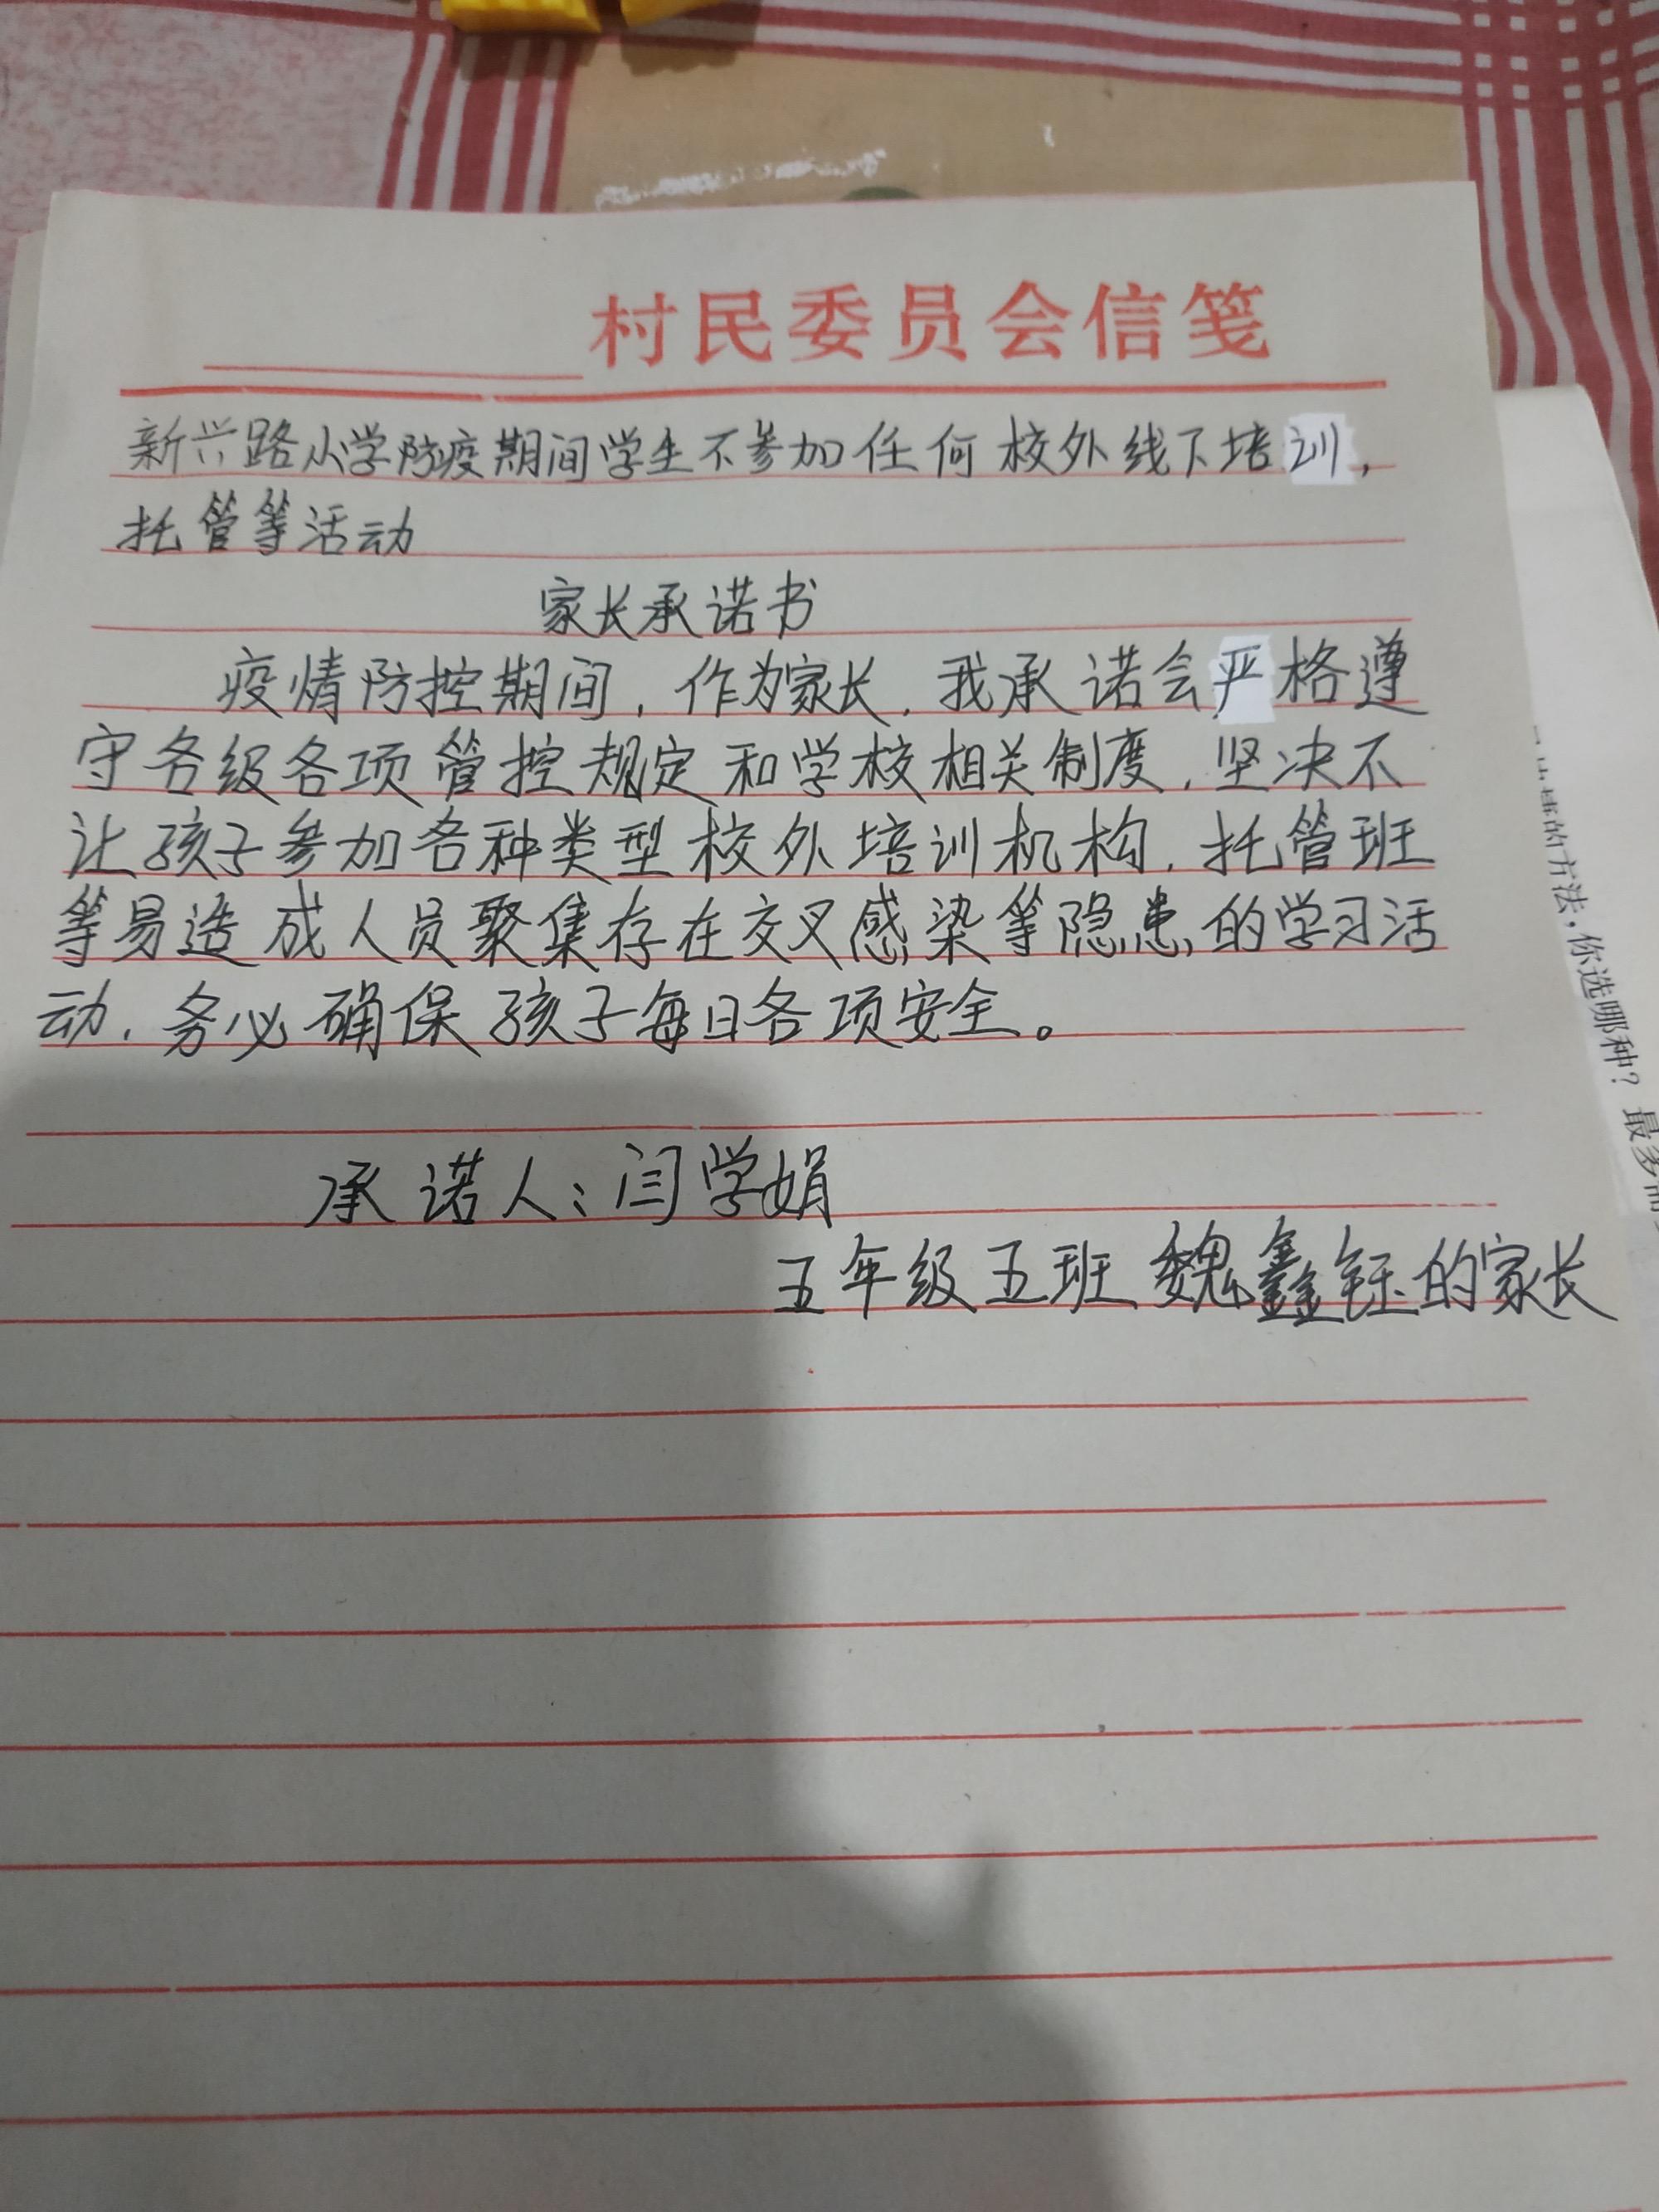 村民委员会信笺
新兴路小学防疫期间学生不参加任何校外线下培训，
托管等活动
家长承诺书
疫情防控期间，作为家长，我承诺会严格遵
守各级各项管控规定和学校相关制度，坚决不
让孩子参加各种类型校外培训机构，托管班
等易造成人员聚集存在交叉感染等隐患的学习活
动，务必确保孩子每日各项安全。
承诺人：闫学娟
五年级五班魏鑫钰的家长
的方法，你选哪种？最多